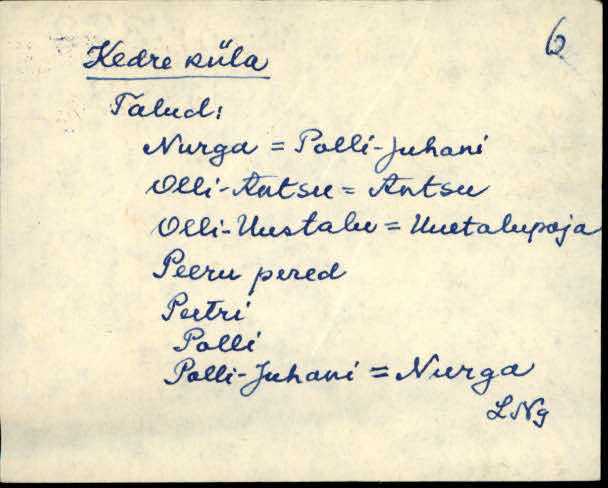 6
Kedre küla
Talud:
Nurga = Polli-Juhani
Olli-Antsu = Antsu
Olli-Uustalu = Uuetalupoja
Peeru pered
Peetri
Polli
Polli-Juhani = Nurga
LNg